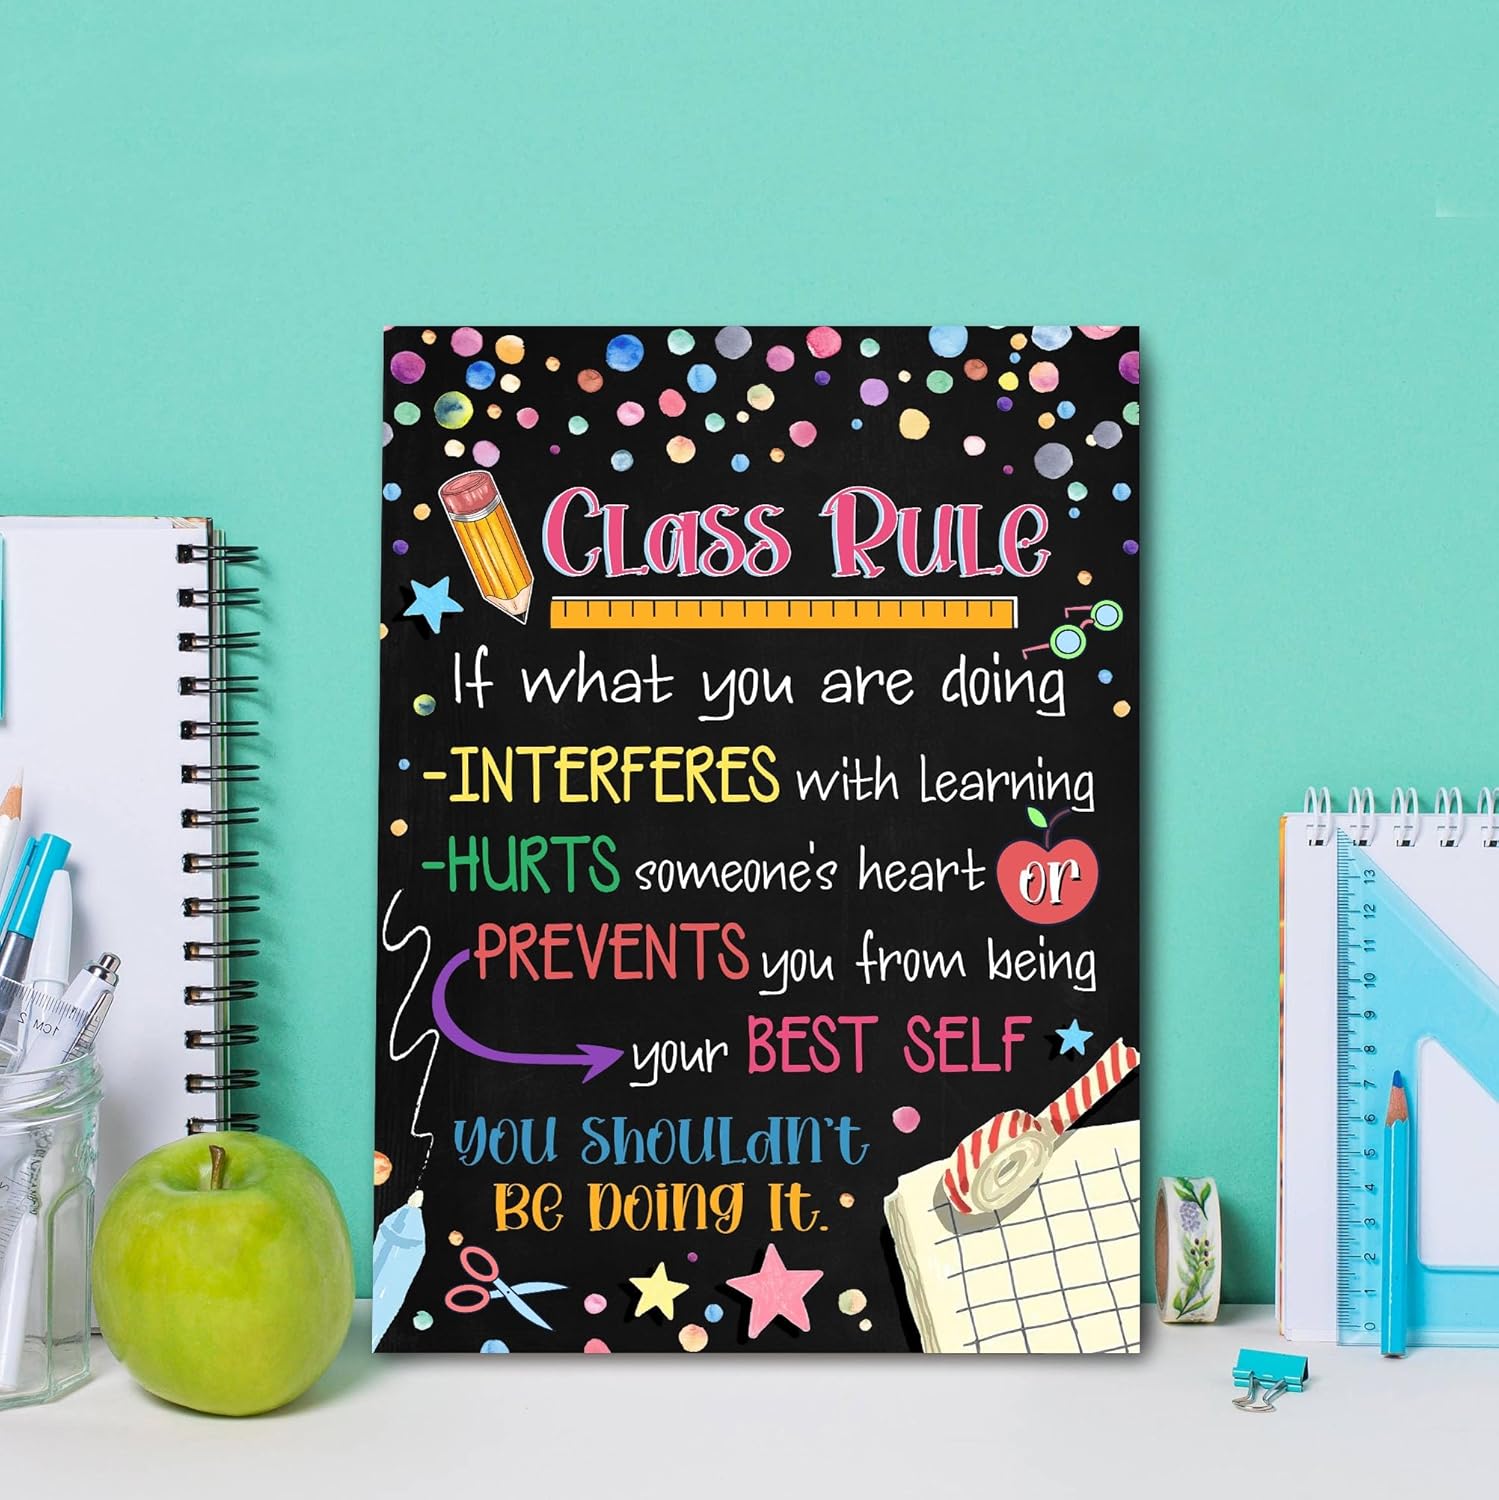 Class Rule
If what you are doing
-INTERFERES with learning
-HURTS someone's heart or
PREVENTS you from being
your BEST SELF
you shouldn't
be doing it.
1CM 2
13
12
11
10
9
8
7
6
5
4
3
2
1
0